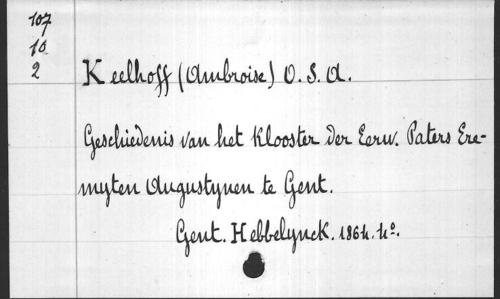 107
10
2
Keelhoff (Ambroise) O. S. A.
Geschiedenis van het Klooster der Eerw. Paters Ere-
myten Augustynen te Gent.
Gent. Hebbelynck. 1864. 4º.